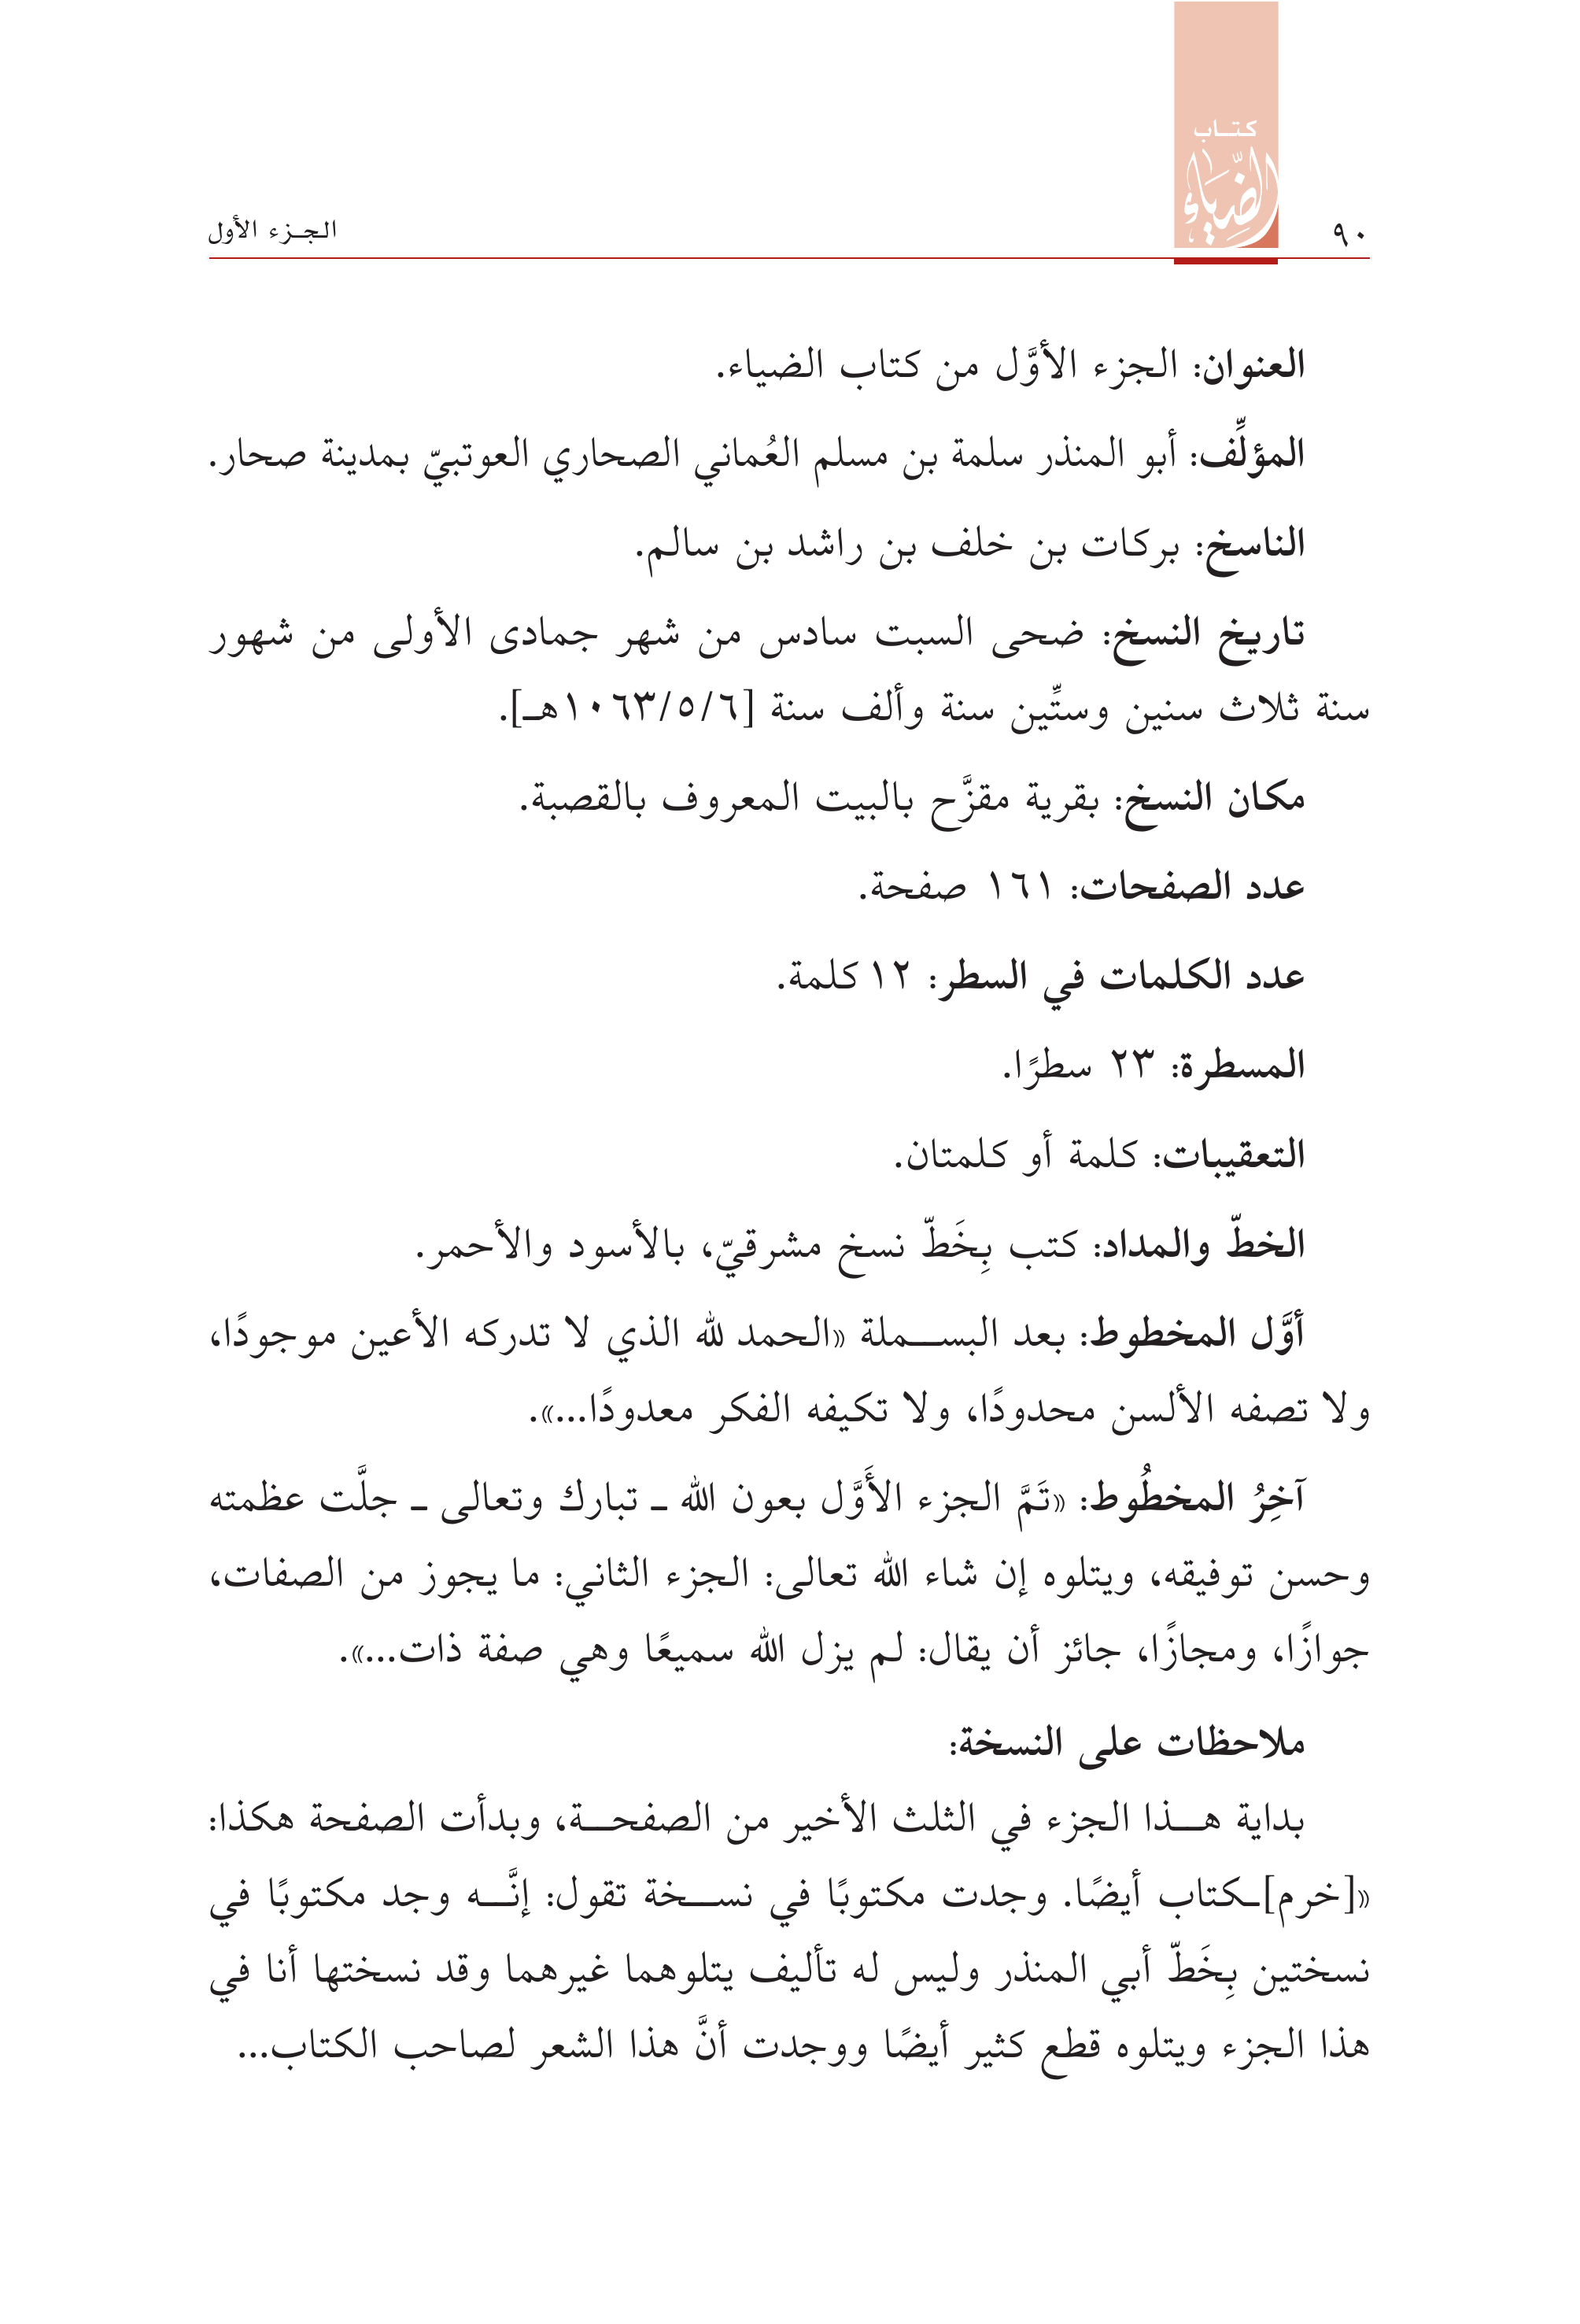 ٩٠
كتـاب
الضِّيَاء
الـجـزء الأول
العنوان: الجزء الأوَّل من كتاب الضياء.
المؤلِّف: أبو المنذر سلمة بن مسلم العُماني الصحاري العوتبيّ بمدينة صحار.
الناسخ: بركات بن خلف بن راشد بن سالم.
تاريخ النسخ: ضحى السبت سادس من شهر جمادى الأولى من شهور
سنة ثلاث سنين وستِّين سنة وألف سنة [١٠٦٣/٥/٦هـ].
مكان النسخ: بقرية مقزَّح بالبيت المعروف بالقصبة.
عدد الصفحات: ١٦١ صفحة.
عدد الكلمات في السطر: ١٢ كلمة.
المسطرة: ٢٣ سطرًا.
التعقيبات: كلمة أو كلمتان.
الخطّ والمداد: كتب بِخَطّ نسخ مشرقيّ، بالأسود والأحمر.
أوَّل المخطوط: بعد البســـملة «الحمد لله الذي لا تدركه الأعين موجودًا،
ولا تصفه الألسن محدودًا، ولا تكيفه الفكر معدودًا...».
آخِرُ المخطُوط: «تَمَّ الجزء الأَوَّل بعون الله ـ تبارك وتعالى ـ جلَّت عظمته
وحسن توفيقه، ويتلوه إن شاء الله تعالى: الجزء الثاني: ما يجوز من الصفات،
جوازًا، ومجازًا، جائز أن يقال: لم يزل الله سميعًا وهي صفة ذات...».
ملاحظات على النسخة:
بداية هـــذا الجزء في الثلث الأخير من الصفحـــة، وبدأت الصفحة هكذا:
«[خرم]ـكتاب أيضًا. وجدت مكتوبًا في نســـخة تقول: إنَّـــه وجد مكتوبًا في
نسختين بِخَطّ أبي المنذر وليس له تأليف يتلوهما غيرهما وقد نسختها أنا في
هذا الجزء ويتلوه قطع كثير أيضًا ووجدت أنَّ هذا الشعر لصاحب الكتاب...